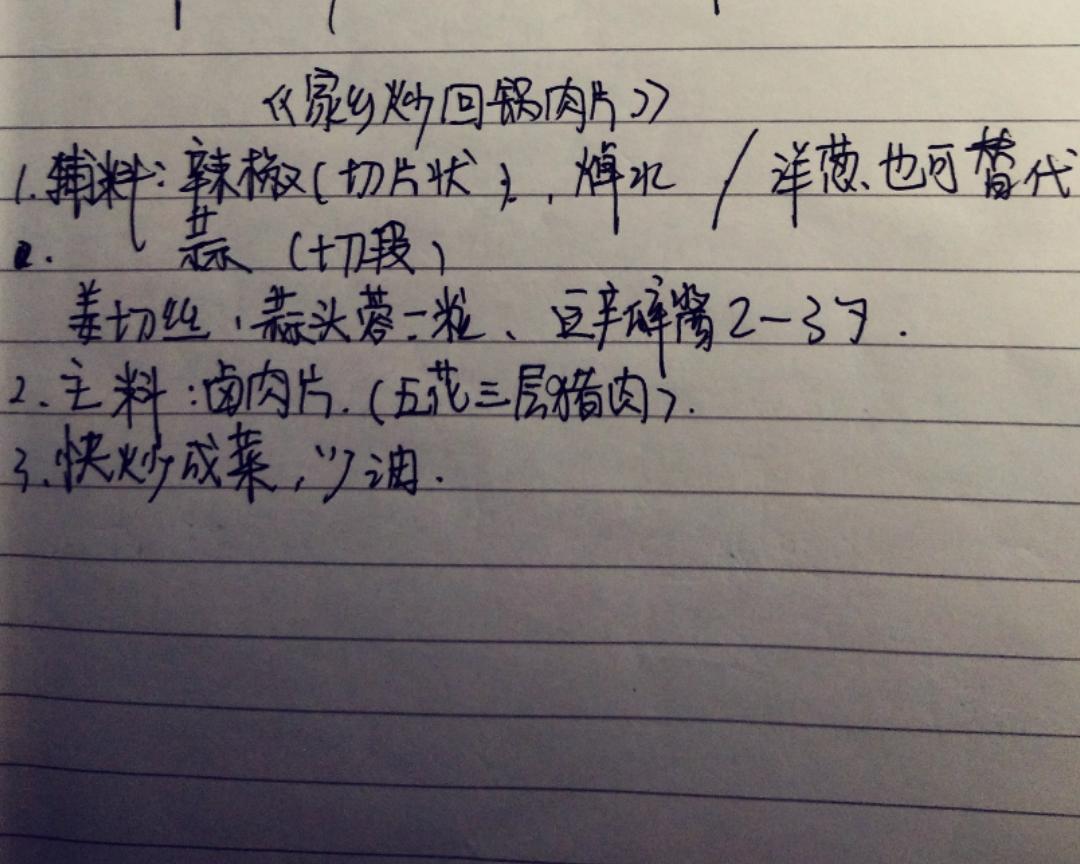 《家乡炒回锅肉片》
1.辅料：辣椒(切片状)，焯水 / 洋葱、也可替代
蒜（切段）
姜切丝，蒜头蓉一粒、豆瓣酱2-3勺.
2.主料：卤肉片.(五花三层猪肉).
3.快炒成菜，少油.